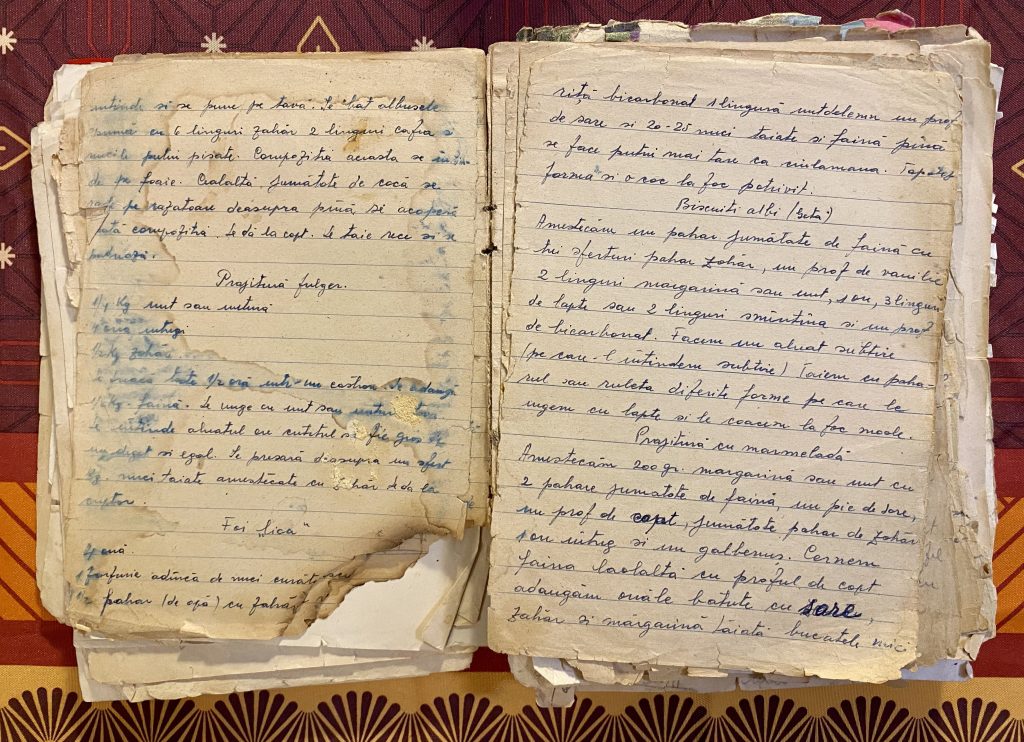 intinde si se pune pe tavă. Se bat albusele
spumă cu 6 linguri zahăr 2 linguri cafea si
nucile putin pisate. Compozitia aceasta se intin-
de pe foaie. Cealaltă jumătate de cocă se
rade pe razatoare deasupra pină se acoperă
toată compozitia. Se dă la copt. Se taie rece si se
pudrează.
Prajitură fulger.
1/4 Kg unt sau untură
4 ouă intregi
1/2 Kg zahăr
Se freacă toate 1/2 oră intr-un castron. Se adaugă
1/2 Kg. faină. Se unge cu unt sau untură
Se intinde aluatul cu cutitul să fie gros de
un deget si egal. Se presară deasupra un sfert
Kg. nuci taiate amestecate cu zahăr. Se da la
cuptor.
Foi „Lică"
4 ouă.
1 farfurie adincă de nuci curăt
1 1/2 pahar (de apă) cu zahăr
riță bicarbonat 1 lingură untdelemn un prof
de sare si 20-25 nuci taiate si faină pină
se face putin mai tare ca smintina. Tapetez
forma si o coc la foc potrivit.
Biscuiti albi (Geta)
Amestecăm un pahar jumătate de faină cu
trei sferturi pahar zahăr, un prof de vanilie
2 linguri margarină sau unt, 1 ou, 3 linguri
de lapte sau 2 linguri smintina si un prof
de bicarbonat. Facem un aluat subtire
(pe care-l intindem subtire) taiem cu paha-
rul sau ruleta diferite forme pe care le
ungem cu lapte si le coacem la foc moale.
Prajitură cu marmeladă
Amestecăm 200 gr. margarină sau unt cu
2 pahare jumatate de faină, un pic de sare,
un prof de copt, jumătate pahar de zahăr
1 ou intreg si un galbenus. Cernem
faina laolaltă cu praful de copt
adaugăm ouăle bătute cu sare,
zahăr si margarină taiată bucatele mici